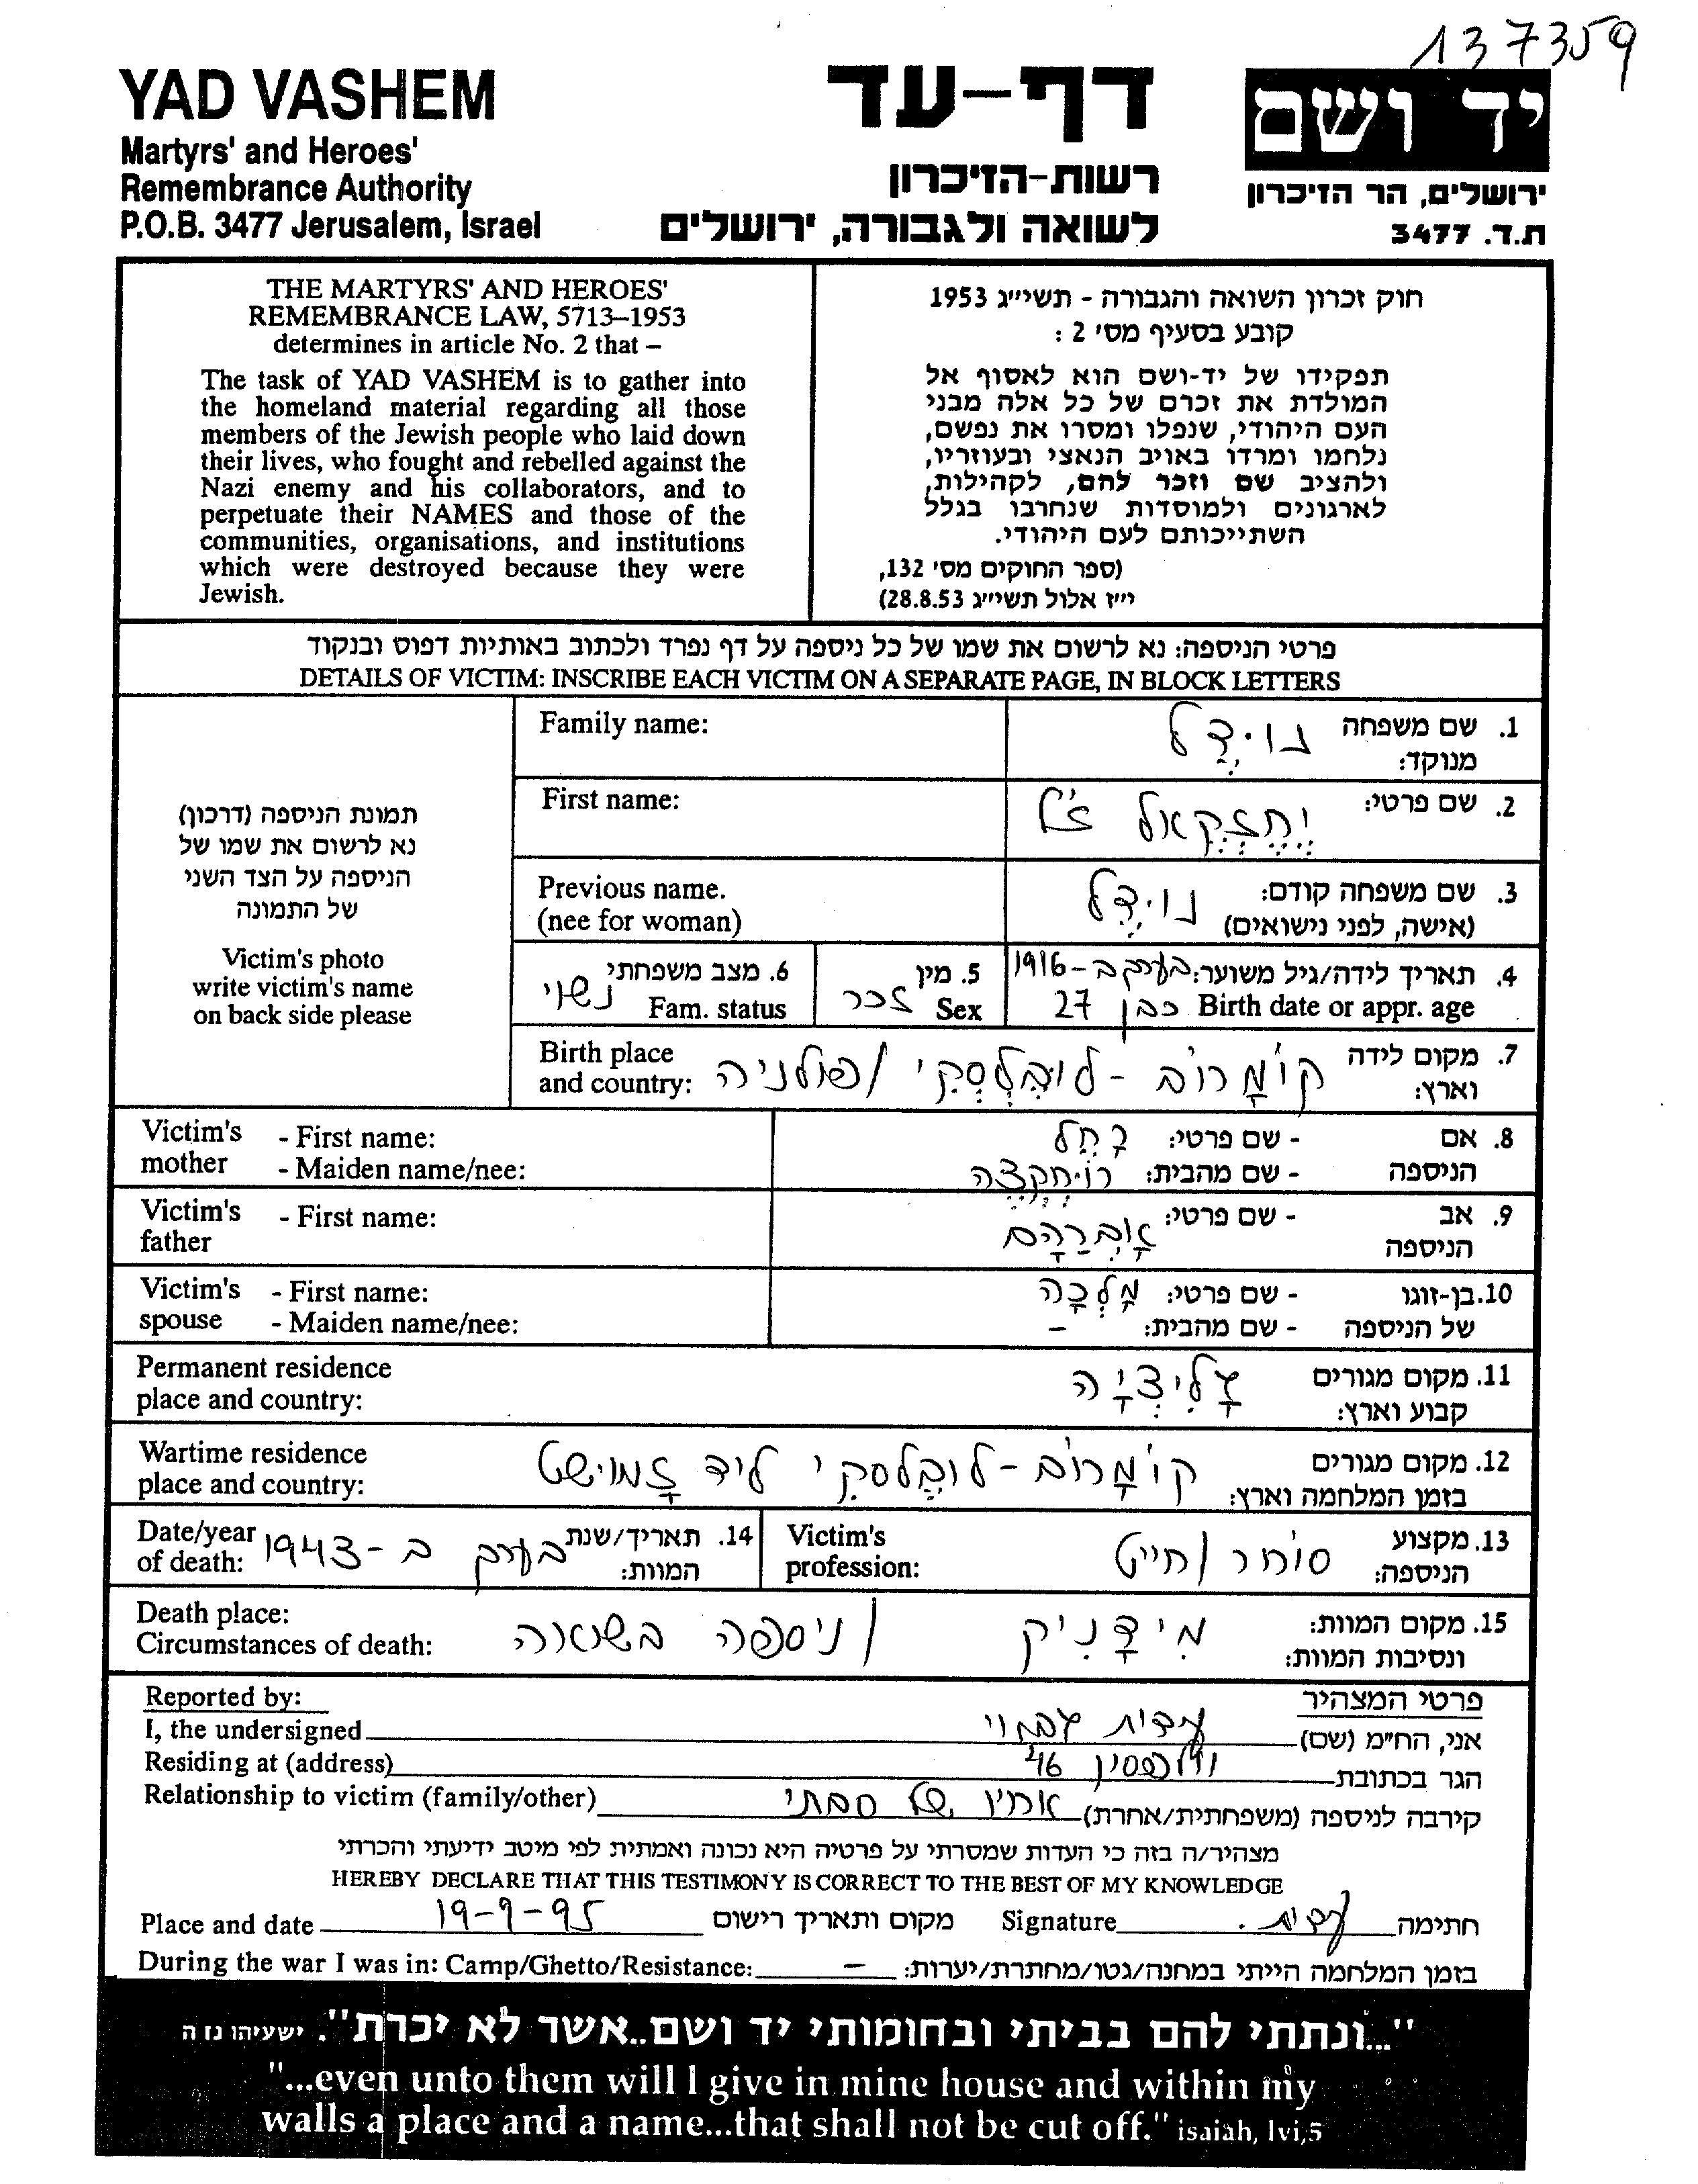 137359
YAD VASHEM
Martyrs' and Heroes'
Remembrance Authority
P.O.B. 3477 Jerusalem, Israel
דף-עד
רשות-הזיכרון
לשואה ולגבורה, ירושלים
יד ושם
ירושלים, הר הזיכרון
ת.ד. 3477
THE MARTYRS' AND HEROES'
REMEMBRANCE LAW, 5713–1953
determines in article No. 2 that –
The task of YAD VASHEM is to gather into
the homeland material regarding all those
members of the Jewish people who laid down
their lives, who fought and rebelled against the
Nazi enemy and his collaborators, and to
perpetuate their NAMES and those of the
communities, organisations, and institutions
which were destroyed because they were
Jewish.
חוק זכרון השואה והגבורה - תשי"ג 1953
קובע בסעיף מס' 2 :
תפקידו של יד-ושם הוא לאסוף אל
המולדת את זכרם של כל אלה מבני
העם היהודי, שנפלו ומסרו את נפשם,
נלחמו ומרדו באויב הנאצי ובעוזריו,
ולהציב שם וזכר להם, לקהילות,
לארגונים ולמוסדות שנחרבו בגלל
השתייכותם לעם היהודי.
(ספר החוקים מס' 132,
י"ז אלול תשי"ג 28.8.53)
פרטי הניספה: נא לרשום את שמו של כל ניספה על דף נפרד ולכתוב באותיות דפוס ובנקוד
DETAILS OF VICTIM: INSCRIBE EACH VICTIM ON A SEPARATE PAGE, IN BLOCK LETTERS
תמונת הניספה (דרכון)
נא לרשום את שמו של
הניספה על הצד השני
של התמונה
Victim's photo
write victim's name
on back side please
Family name:
1. שם משפחה נוידל
מנוקד:
First name:
2. שם פרטי: יחזקאל ז"ל
Previous name.
(nee for woman)
3. שם משפחה קודם: נוידל
(אישה, לפני נישואים)
4. תאריך לידה/גיל משוער: בערך ב-1916
Birth date or appr. age כבן 27
5. מין
Sex זכר
6. מצב משפחתי
Fam. status נשוי
Birth place
and country:
7. מקום לידה קומרוב - לובלסקי / פולניה
וארץ:
Victim's - First name:
mother - Maiden name/nee:
8. אם - שם פרטי: רחל
הניספה - שם מהבית:
Victim's - First name:
father
9. אב - שם פרטי: אברהם
הניספה
Victim's - First name:
spouse - Maiden name/nee:
10. בן-זוגו - שם פרטי: מלכה
של הניספה - שם מהבית: -
Permanent residence
place and country:
11. מקום מגורים
קבוע וארץ:
Wartime residence
place and country:
12. מקום מגורים קומרוב - לובלסקי ליד זמוישט
בזמן המלחמה וארץ:
Date/year
of death:
14. תאריך/שנת בערך ב - 1943
המוות:
Victim's
profession:
13. מקצוע סוחר / חייט
הניספה:
Death place:
Circumstances of death:
15. מקום המוות: מידניק / ניספה בשואה
ונסיבות המוות:
Reported by:
פרטי המצהיר
I, the undersigned
אני, הח"מ (שם)
Residing at (address)
הגר בכתובת 46
Relationship to victim (family/other)
קירבה לניספה (משפחתית/אחרת) אחיו של סבתי
מצהיר/ה בזה כי העדות שמסרתי על פרטיה היא נכונה ואמתית לפי מיטב ידיעתי והכרתי
HEREBY DECLARE THAT THIS TESTIMONY IS CORRECT TO THE BEST OF MY KNOWLEDGE
Place and date 19-9-95 מקום ותאריך רישום
Signature חתימה
During the war I was in: Camp/Ghetto/Resistance: - בזמן המלחמה הייתי במחנה/גטו/מחתרת/יערות:
"...ונתתי להם בביתי ובחומותי יד ושם..אשר לא יכרת". ישעיהו נו ה
"...even unto them will I give in mine house and within my
walls a place and a name...that shall not be cut off." isaiah, lvi,5